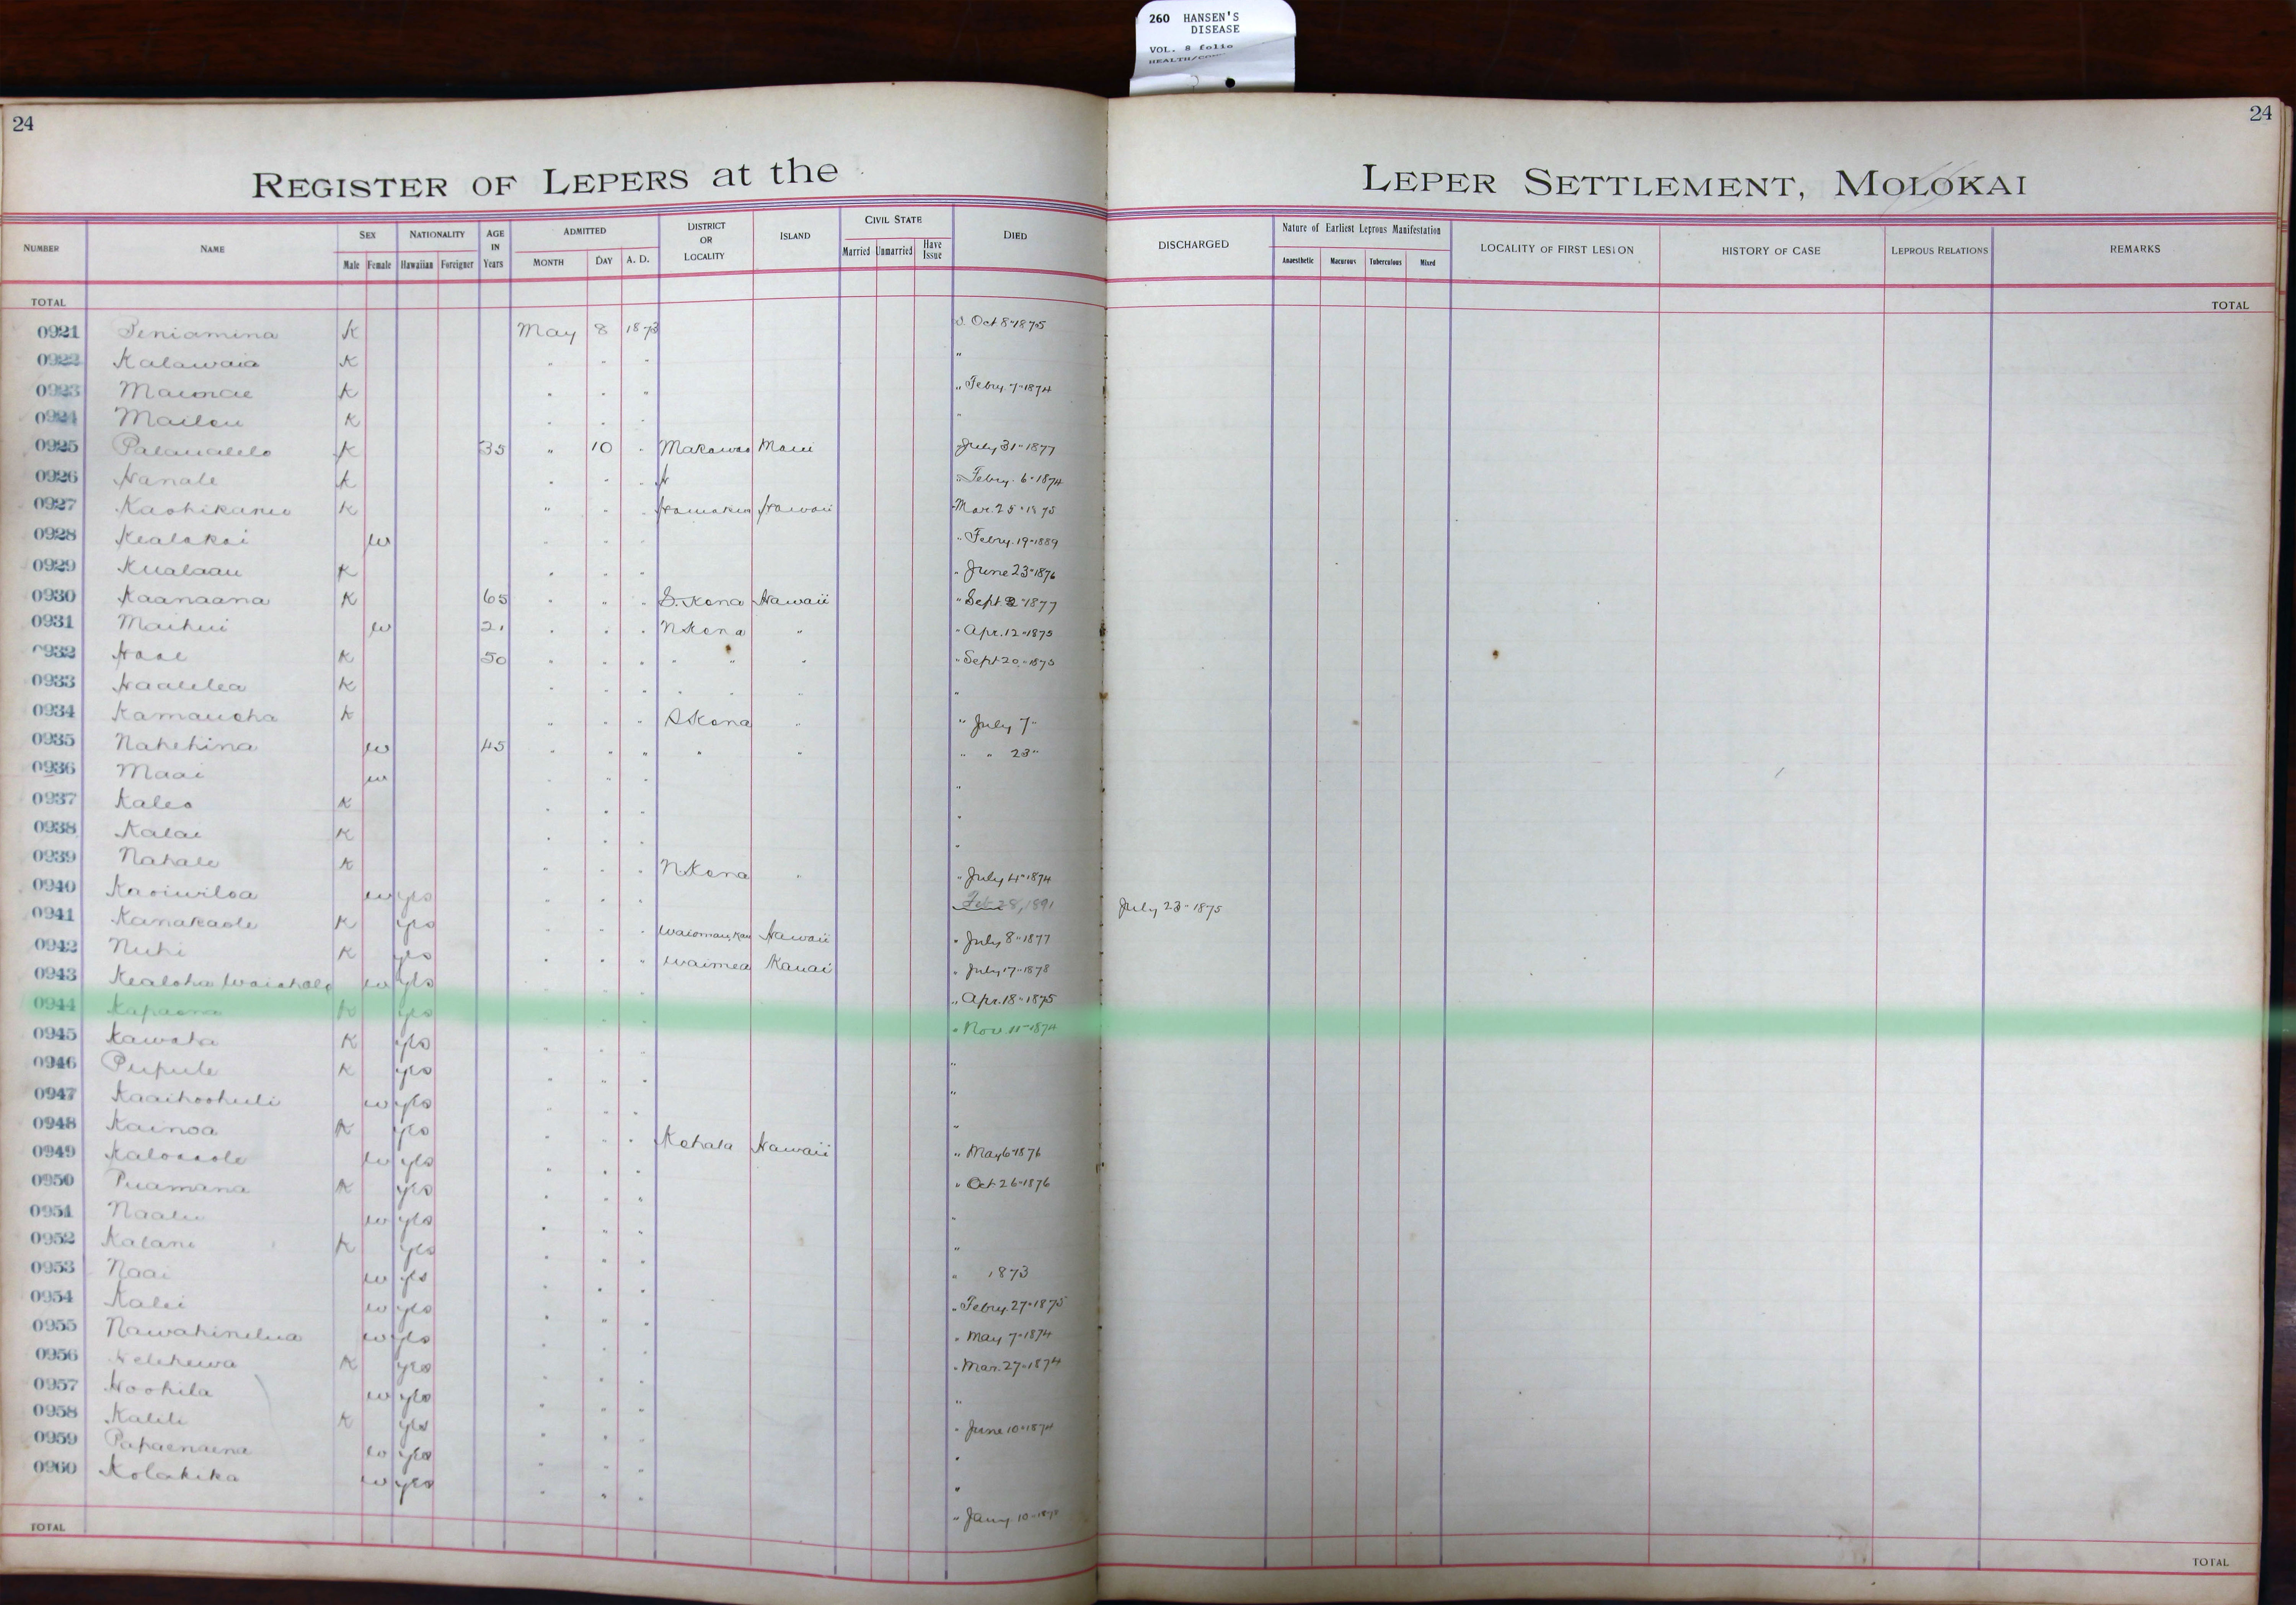 260 HANSEN'S
DISEASE
VOL. 8 folio
24
24
REGISTER OF LEPERS at the LEPER SETTLEMENT, MOLOKAI
NUMBER NAME SEX Male Female NATIONALITY Hawaiian Foreigner AGE IN Years ADMITTED MONTH DAY A. D. DISTRICT OR LOCALITY ISLAND CIVIL STATE Married Unmarried Have Issue DIED DISCHARGED Nature of Earliest Leprous Manifestation Anaesthetic Macurous Tuberculous Mixed LOCALITY OF FIRST LESION HISTORY OF CASE LEPROUS RELATIONS REMARKS
TOTAL TOTAL
0921 Peniamina K May 8 1873 Oct 8" 1875
0922 Kalawaia K " " " "
0923 K " " " " Febry. 7" 1874
0924 K " " " "
0925 K 35 " 10 " Makawao Maui July 31" 1877
0926 Hanale K " " " " Febry. 6" 1874
0927 K " " " Hamakua Hawaii Mar. 25" 1875
0928 Kealakai w " " " " Febry. 19" 1889
0929 Kualaau K " " " " June 23" 1876
0930 Kaanaana K 65 " " " S. Kona Hawaii " Sept 2" 1877
0931 Maihui w 21 " " " N Kona " " Apr. 12" 1875
0932 K 50 " " " " " " " Sept 20" 1875
0933 Haalelea K " " " " " " "
0934 Kamauoha K " " " S Kona " " July 7"
0935 Nahehina w 45 " " " " " " " 23"
0936 Maai w " " " "
0937 Kaleo K " " " "
0938 Kalai K " " " "
0939 Nahale K " " " N Kona " " July 4" 1874
0940 Kaoiwiloa w yes " " " Feb 28, 1891 July 23" 1875
0941 Kanakaole K yes " " " Hawaii " July 8" 1877
0942 Nuhi K yes " " " Waimea Kauai " July 17" 1878
0943 Kealoha w yes " " " " Apr. 18" 1875
0944 K yes " " " " Nov. 11" 1874
0945 Kawaha K yes " " " "
0946 Pupule K yes " " " "
0947 Kaaihoohuli w yes " " " "
0948 Kainoa K yes " " " Kohala Hawaii " May 6" 1876
0949 w yes " " " " Oct 26" 1876
0950 Puamana K yes " " " "
0951 w yes " " " "
0952 Kalani K yes " " " " 1873
0953 Naai w yes " " " " Febry. 27" 1875
0954 Kalei w yes " " " " May 7" 1874
0955 Nawahinelua w yes " " " " Mar. 27" 1874
0956 K yes " " " "
0957 Hoohila w yes " " " " June 10" 1874
0958 Kalili K yes " " " "
0959 Papaenaena w yes " " " "
0960 Kolakika w yes " " " " Jany. 10"
TOTAL TOTAL